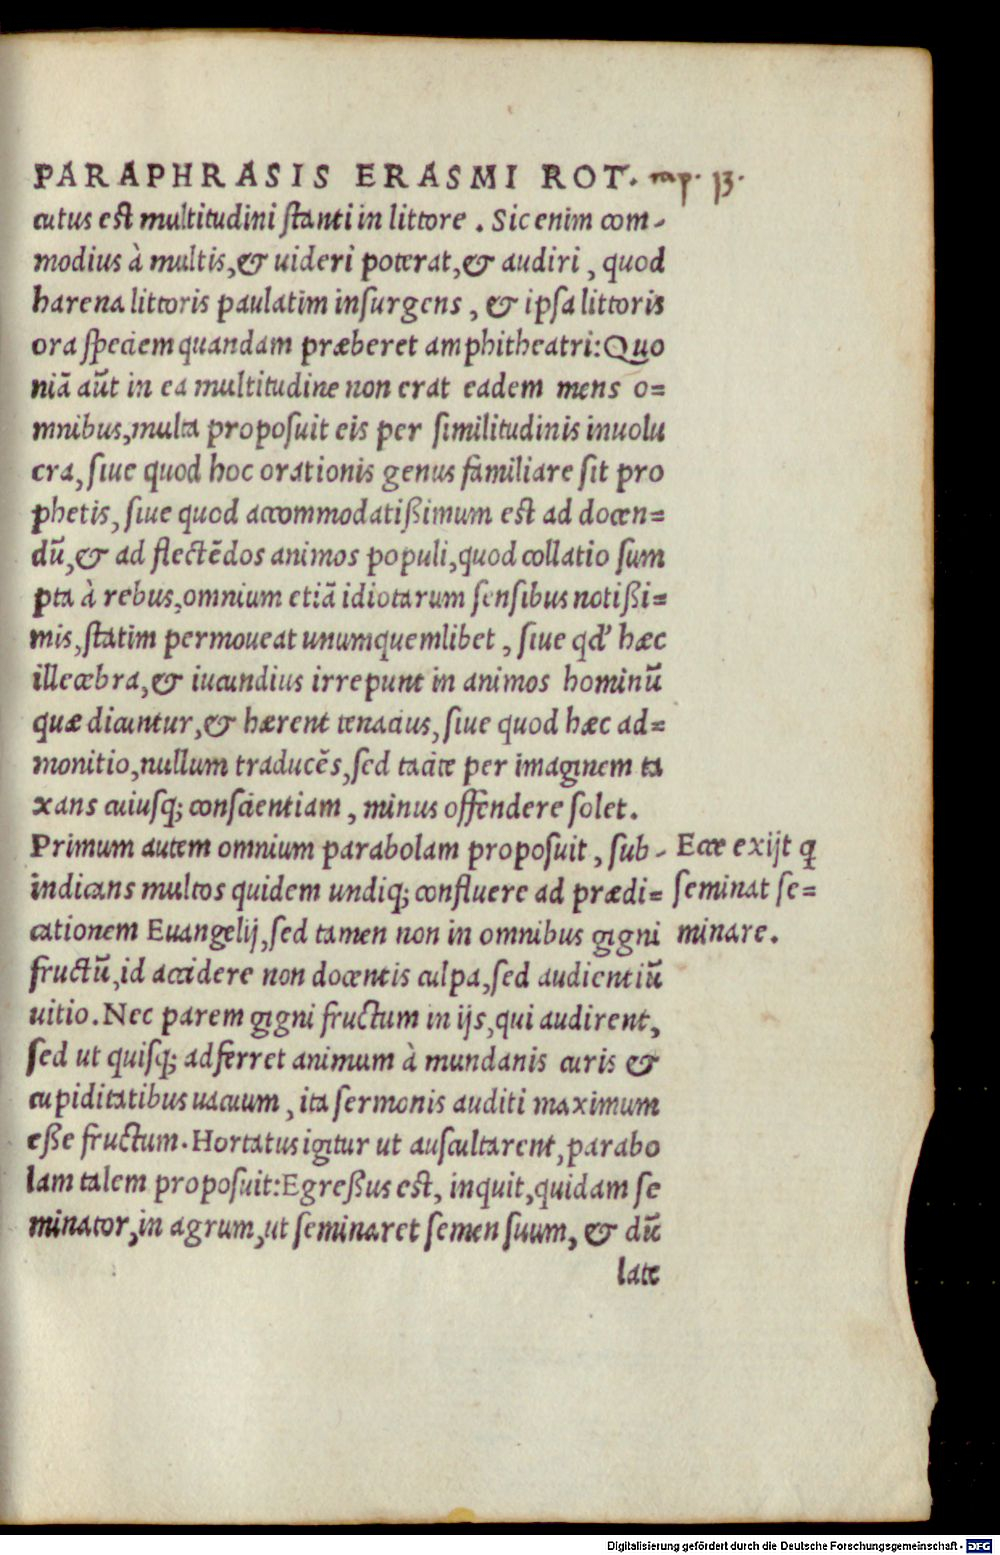 PARAPHRASIS ERASMI ROT. cap. 13.
cutus est multitudini stanti in littore . Sic enim com-
modius à multis,& uideri poterat,& audiri , quod
harena littoris paulatim insurgens , & ipsa littoris
ora speciem quandam præberet amphitheatri: Quo
niã aũt in ea multitudine non erat eadem mens o=
mnibus,multa proposuit eis per similitudinis inuolu
cra, siue quod hoc orationis genus familiare sit pro
phetis, siue quod accommodatißimum est ad docen=
dũ,& ad flectẽdos animos populi,quod collatio sum
pta à rebus,omnium etiã idiotarum sensibus notißi=
mis,statim permoueat unumquemlibet , siue qd' hæc
illecebra,& iucundius irrepunt in animos hominũ
quæ dicuntur,& hærent tenacius, siue quod hæc ad=
monitio,nullum traducẽs,sed tacite per imaginem ta
xans cuiusq; conscientiam , minus offendere solet.
Primum autem omnium parabolam proposuit , sub-
indicans multos quidem undiq; confluere ad prædi=
cationem Euangelij,sed tamen non in omnibus gigni
fructũ,id accidere non docentis culpa,sed audientiũ
uitio. Nec parem gigni fructum in ijs,qui audirent,
sed ut quisq; adferret animum à mundanis curis &
cupiditatibus uacuum , ita sermonis auditi maximum
eße fructum. Hortatus igitur ut auscultarent, parabo
lam talem proposuit: Egreßus est, inquit,quidam se
minator,in agrum,ut seminaret semen suum, & dũ
late
Ecce exijt q
seminat se=
minare.
Digitalisierung gefördert durch die Deutsche Forschungsgemeinschaft - DFG